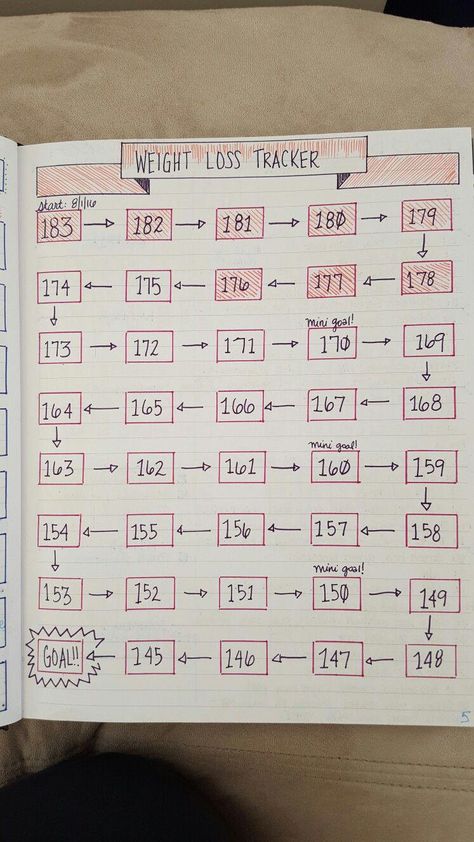 WEIGHT LOSS TRACKER
Start: 8/1/16
183 → 182 → 181 → 180 → 179
174 ← 175 ← 176 ← 177 ← 178
mini goal!
173 → 172 → 171 → 170 → 169
164 ← 165 ← 166 ← 167 ← 168
mini goal!
163 → 162 → 161 → 160 → 159
154 ← 155 ← 156 ← 157 ← 158
mini goal!
153 → 152 → 151 → 150 → 149
GOAL!! ← 145 ← 146 ← 147 ← 148
5